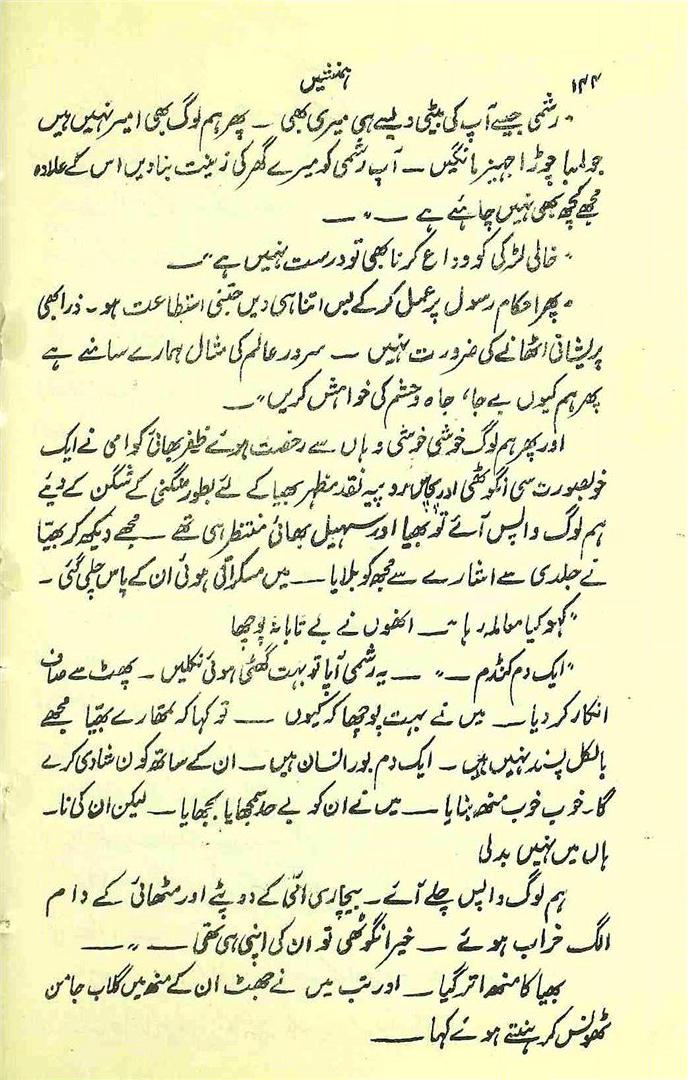 ۱۴۴
ہمنشیں
"رشمی جیسے آپ کی بیٹی ویسے ہی میری بھی ۔ پھر ہم لوگ بھی امیر نہیں ہیں
جو لمبا چوڑا جہیز مانگیں ۔ آپ رشمی کو میرے گھر کی زینت بنا دیں اس کے علاوہ
مجھے کچھ بھی نہیں چاہئے ہے ــ "ــ
"خالی لڑکی کو وداع کرنا بھی تو درست نہیں ہے"ــ
"پھر احکام رسول پر عمل کر کے بس اتنا ہی دیں جتنی استطاعت ہو ۔ ذرا بھی
پریشانی اٹھانے کی ضرورت نہیں ــ سرور عالم کی مثال ہمارے سامنے ہے
پھر ہم کیوں بے جا، جاہ و حشم کی خواہش کریں"ــ
اور پھر ہم لوگ خوشی خوشی وہاں سے رخصت ہوئے ظفر بھائی کو امی نے ایک
خوبصورت سی انگوٹھی اور پچاس روپیہ نقد مظہر بھیا کے لئے بطور منگنی کے شگن کے دیئے
ہم لوگ واپس آئے تو بھیا اور سہیل بھائی منتظر ہی تھے ــ مجھے دیکھ کر بھیّا
نے جلدی سے اشارے سے مجھ کو بلایا ــ میں مسکراتی ہوئی ان کے پاس چلی گئی ۔
"کہو کیا معاملہ رہا"ــ انھوں نے بے تابانہ پوچھا
"ایک دم کنڈم ــ"ــ یہ رشمی آپا تو بہت گھٹی ہوئی نکلیں ۔ پھٹ سے صاف
انکار کر دیا ــ میں نے بہت پوچھا کہ کیوں ــ تو کہا کہ تمھارے بھیّا مجھے
بالکل پسند نہیں ہیں ۔ ایک دم بور انسان ہیں ۔ ان کے ساتھ کون شادی کرے
گا۔ خوب خوب منھ بنایا ــ میں نے ان کو بے حد سمجھایا بجھایا ــ لیکن ان کی نا۔
ہاں میں نہیں بدلی
ہم لوگ واپس چلے آئے ۔ بیچاری امّی کے دوپٹے اور مٹھائی کے دام
الگ خراب ہوئے ــ خیر انگوٹھی تو ان کی اپنی ہی تھی ــ "ــ
بھیا کا منھ اتر گیا ــ اور تب میں نے جھٹ ان کے منھ میں گلاب جامن
ٹھونس کر ہنستے ہوئے کہا ــ